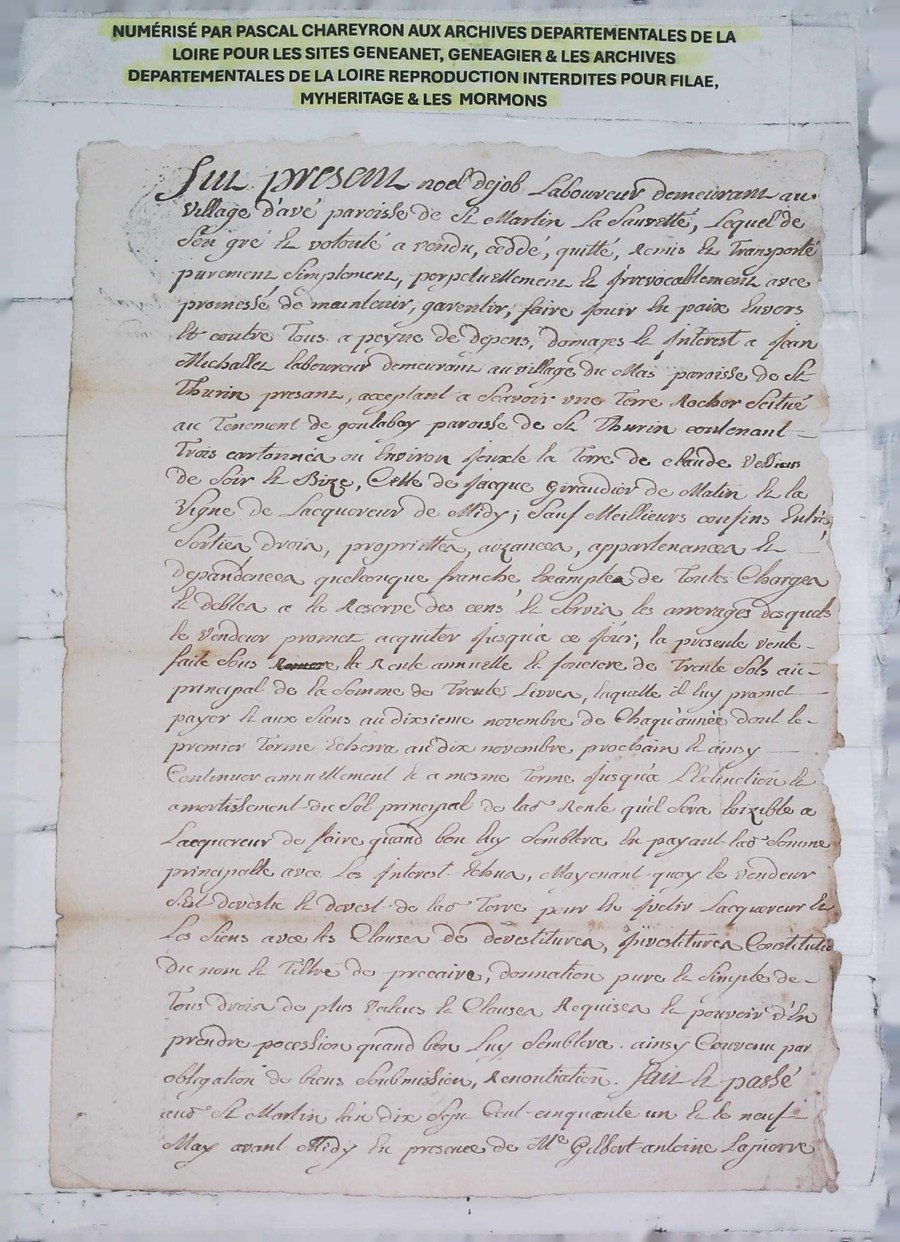 NUMÉRISÉ PAR PASCAL CHAREYRON AUX ARCHIVES DEPARTEMENTALES DE LA
LOIRE POUR LES SITES GENEANET, GENEAGIER & LES ARCHIVES
DEPARTEMENTALES DE LA LOIRE REPRODUCTION INTERDITES POUR FILAE,
MYHERITAGE & LES MORMONS
Fut present noel dejob Laboureur demeurant au
village d'avé paroisse de St Martin La Sauvetté, Lequel de
Son gré et volonté a vendu, ceddé, quitté, Remis et Transporté
purement Simplement, perpetuellement et Irrevocablement avec
promesse de maintenir, garentir, faire Jouir En paix Envers
Et contre Tous a peyne de depens, domages et Interest a Jean
Michallet laboureur demeurant au village du Mas paroisse de St
Thurin presant, acceptant a Scavoir une Terre Rocher Scitué
au Tenement de goutaboy paroisse de St Thurin contenant
Trois cartonnes ou Environ Jouxte la Terre de claude
de Soir et Bize, Celle de Jacque Giraudier de Matin et la
Vigne de Lacquereur de Midy; Sauf Meillieurs confins Entrés,
Sorties drois, proprietés, aizances, appartenances et
depandences quelconque franche Exampte de Toutes Charges
et debtes a la Reserve des cens et Servis les arrerages desquels
le Vendeur promet acquiter Jusqu'a ce Jour; la presente vente
faite Sous la Rente annuelle et fonciere de Trente Sols au
principal de la Somme de Trente Livres, laquelle il luy promet
payer et aux Siens au dixsieme novembre de Chaqu'année dont le
premier Terme Echera au dix novembre prochain et ainsy
Continuer annuellement et a mesme Terme Jusqu'a L'Extinction et
amortissement du Sol principal de lad Rente qu'il Sera loizible a
Lacquereur de faire quand bon luy Semblera En payant lad Somme
principalle avec Les Interest Echus, Moyenant quoy le vendeur
S'est devestu et devest de lad Terre pour En Investir Lacquereur et
Les Siens avec les Clauses de devestitures, Investitures Constitution
Du nom et Tiltre de precaire, donnation pure et Simple de
Tous drois de plus values et Clauses Requises et pouvoir d'En
prendre pocession quand bon Luy Semblera. ainsy Convenu par
obligation de biens Soubmission, Renontiation. fait et passé
aud St Martin l'an dix Sept Cent cinquante un et le neuf
May avant Midy En presence de Me Gilbert antoine Lapierre